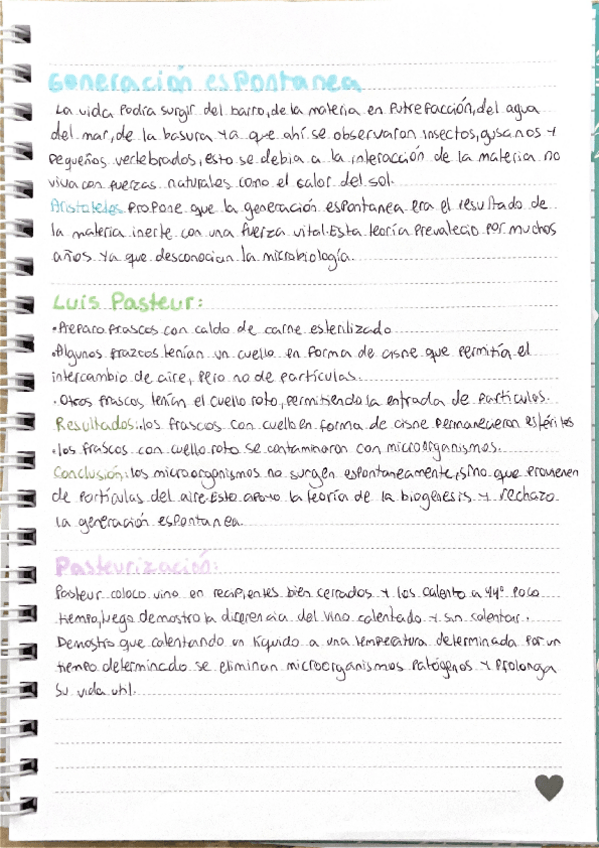 Generación espontanea
La vida Podía surgir del barro, de la materia en Putrefacción, del agua
del mar, de la basura ya que ahí se observaron insectos, gusanos y
Pequeños vertebrados, esto se debia a la interacción de la materia no
viva con fuerzas naturales como el calor del sol.
Aristoteles Propone que la generación espontanea era el resultado de
la materia inerte con una fuerza vital. Esta teoría Prevalecio Por muchos
años ya que desconocian la microbiología.
Luis Pasteur:
•Preparo frascos con caldo de carne esterilizado
•Algunos frazcos tenían un cuello en forma de cisne que permitía el
intercambio de aire, Pero no de partículas.
•Otros frascos tenían el cuello roto, permitiendo la entrada de partículas.
Resultados: •los frascos con cuello en forma de cisne permanecieron estériles
•los frascos con cuello roto se contaminaron con microorganismos.
Conclusión: los microorganismos no surgen espontaneamente, sino que provienen
de partículas del aire. Esto apoyo la teoría de la biogenesis y rechazo
la generación espontanea.
Pasteurización:
Pasteur coloco vino en recipientes bien cerrados y los calento a 44° Poco
tiempo, luego demostro la diferencia del vino calentado y sin calentar.
Demostro que calentando un líquido a una temperatura determinada Por un
tiempo determinado se eliminan microorganismos Patógenos y Prolonga
su vida util.